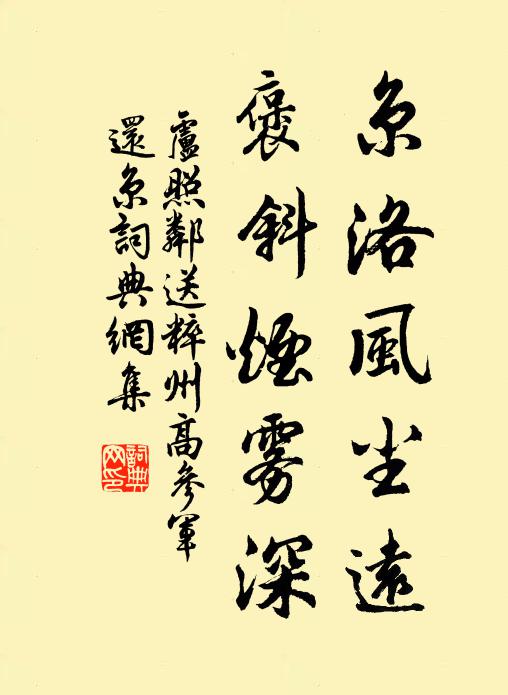 京洛風尘遠
褒斜煙雾深
盧照鄰送粹州高參軍
還京詞典網集
詞典
网印